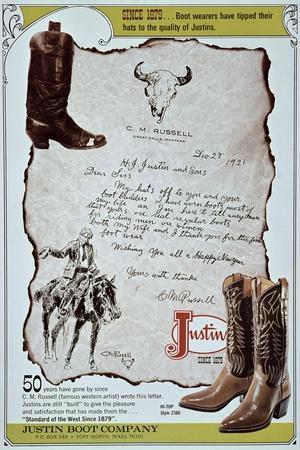 SINCE 1879 . . . Boot wearers have tipped their
hats to the quality of Justins.
C. M. RUSSELL
GREAT FALLS, MONTANA
Dec 28 1921
H.J. Justin and Sons
Dear Sirs
My hats off to you and your
boot builders I have worn boots most of
my life an I'm here to tell anybody
that yours are real regular boots
for riding men or women
both my Wife and I thank you for the fine
foot wear
Wishing You all a Happy New year
Yours with thanks
C M Russell
CM Russell
Justin
SINCE 1879
50 years have gone by since
C. M. Russell (famous western artist) wrote this letter.
Justins are still "built" to give the pleasure
and satisfaction that has made them the . . .
"Standard of the West Since 1879".
HI-TOP
Style 2380
JUSTIN BOOT COMPANY
P.O. BOX 548 • FORT WORTH, TEXAS 76101